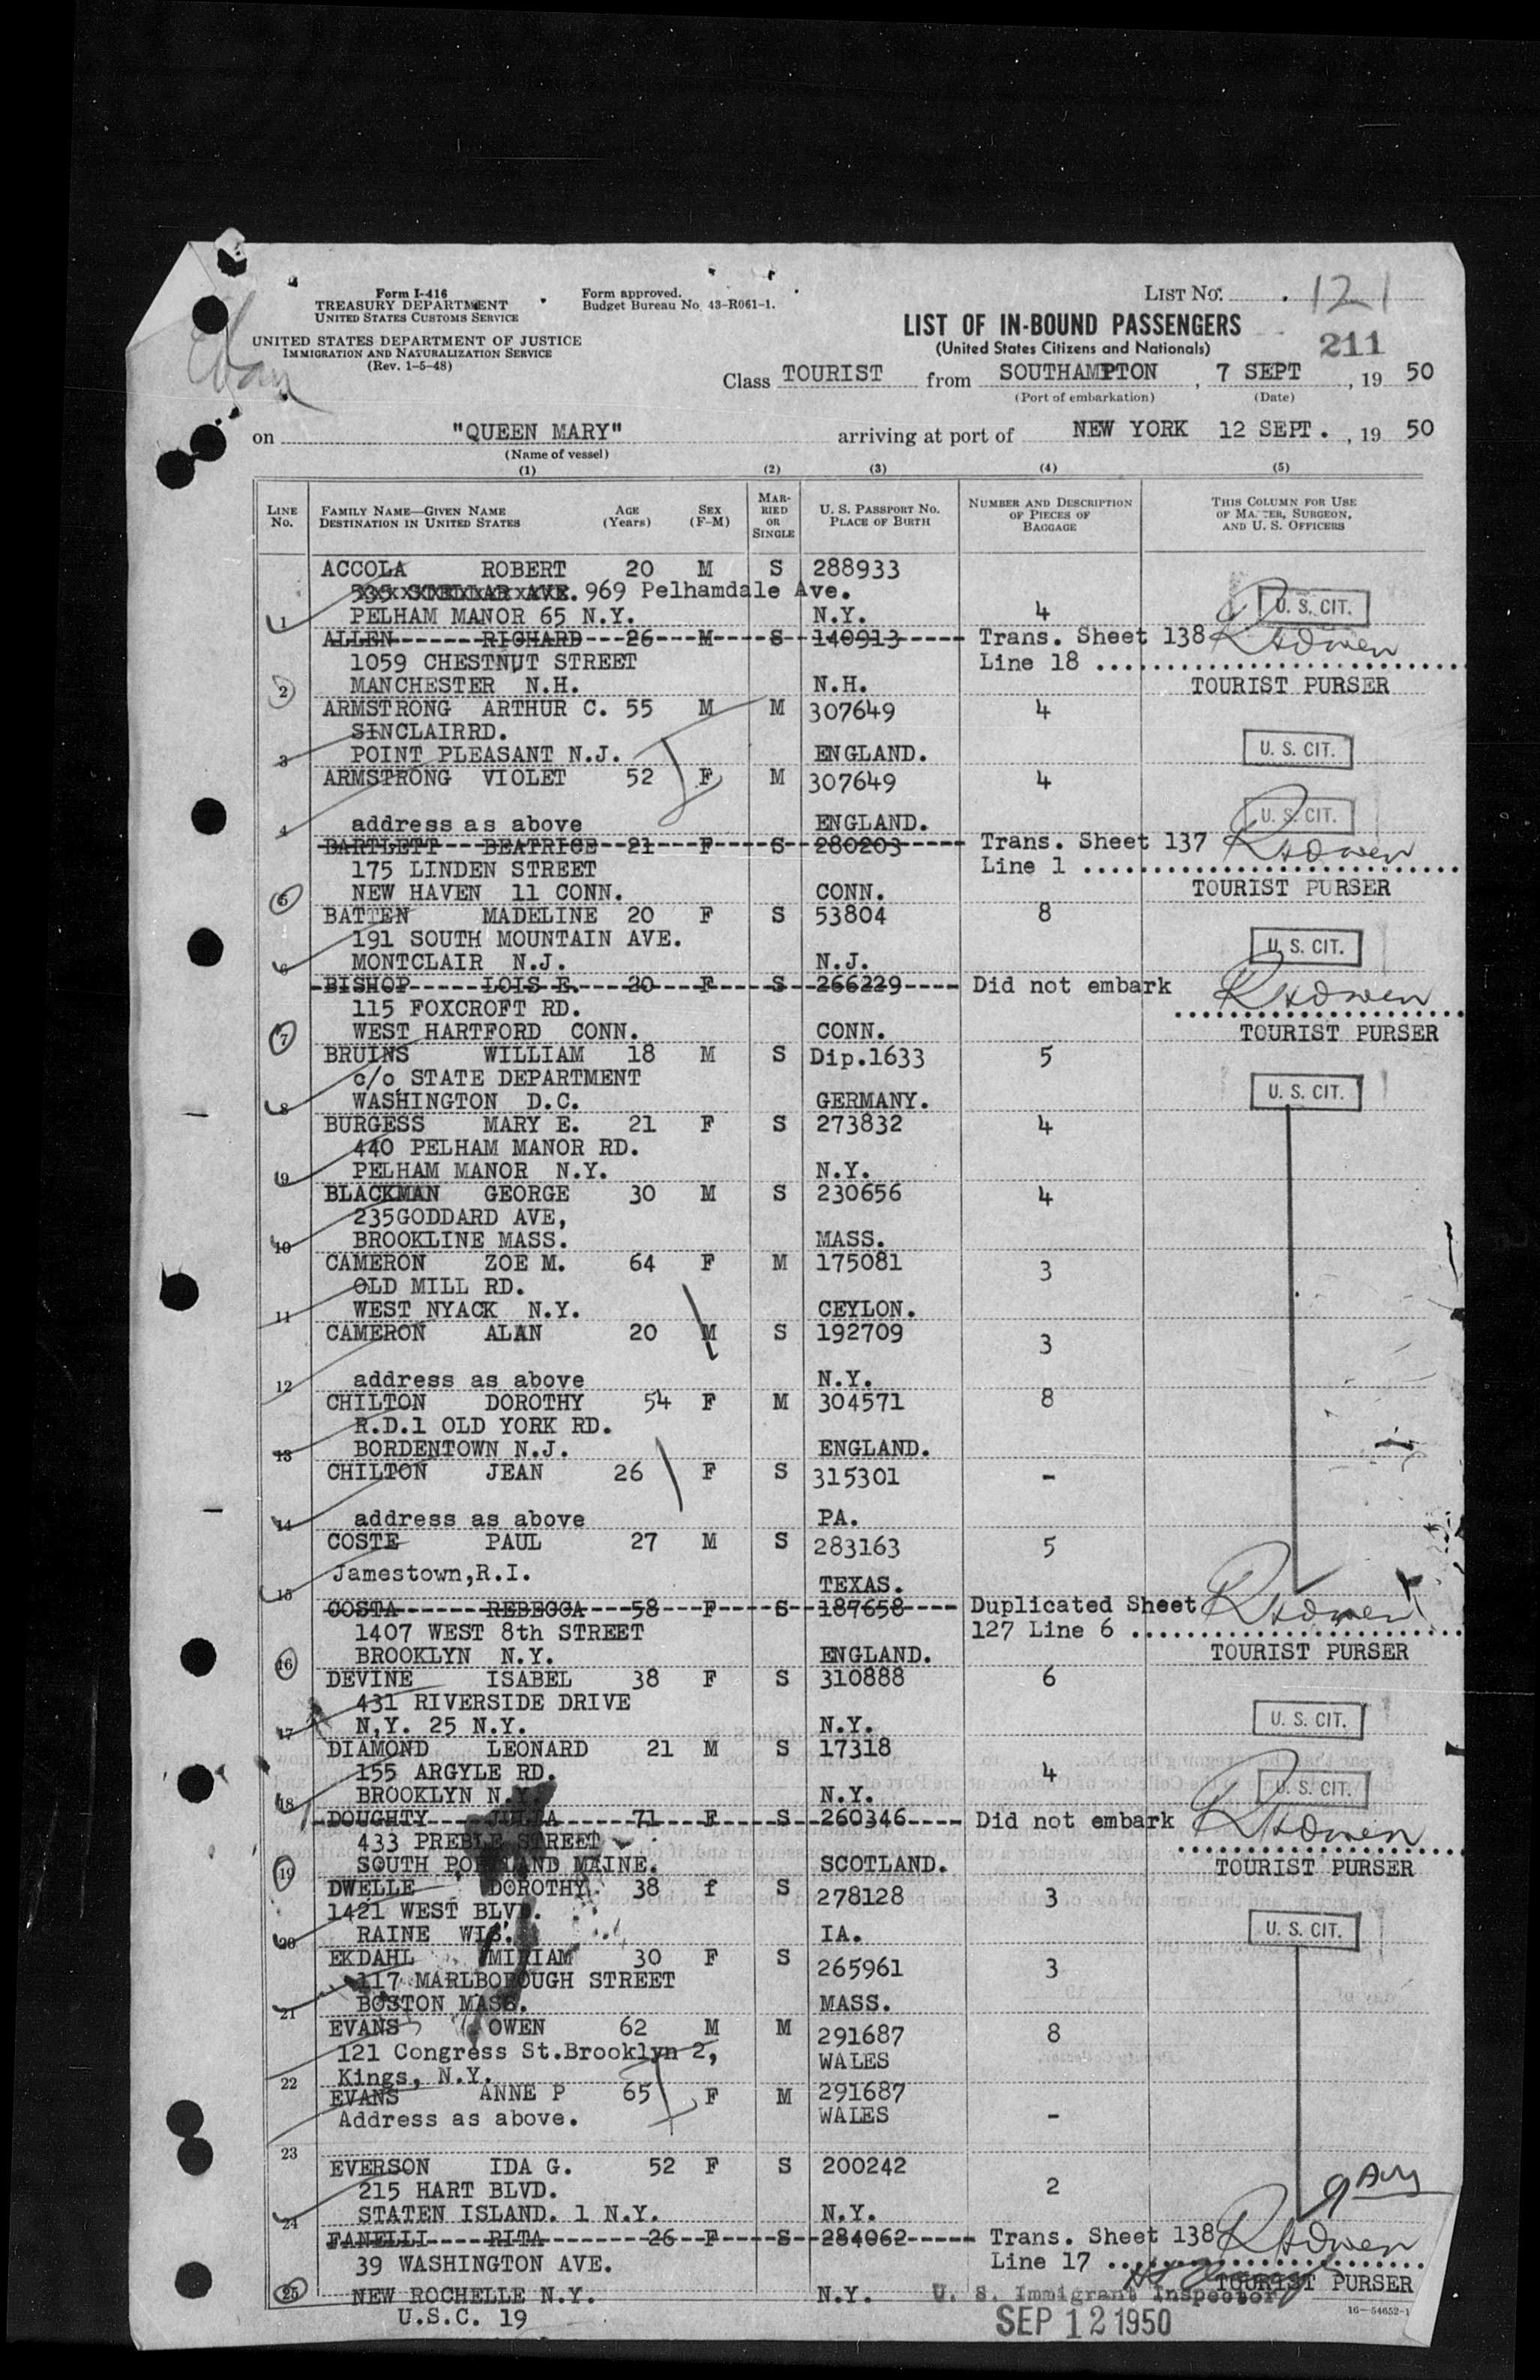 Form I-416
TREASURY DEPARTMENT
UNITED STATES CUSTOMS SERVICE
Form approved.
Budget Bureau No. 43-R061-1.
LIST No. 121
UNITED STATES DEPARTMENT OF JUSTICE
IMMIGRATION AND NATURALIZATION SERVICE
(Rev. 1-5-48)
LIST OF IN-BOUND PASSENGERS
(United States Citizens and Nationals)
211
Class TOURIST from SOUTHAMPTON, 7 SEPT, 19 50
(Port of embarkation) (Date)
on "QUEEN MARY" arriving at port of NEW YORK 12 SEPT., 19 50
(Name of vessel)
(1) (2) (3) (4) (5)
LINE No. FAMILY NAME—GIVEN NAME DESTINATION IN UNITED STATES AGE (Years) SEX (F-M) MARRIED OR SINGLE U. S. PASSPORT NO. PLACE OF BIRTH NUMBER AND DESCRIPTION OF PIECES OF BAGGAGE THIS COLUMN FOR USE OF MASTER, SURGEON, AND U. S. OFFICERS
ACCOLA ROBERT 20 M S 288933
969 Pelhamdale Ave.
1 PELHAM MANOR 65 N.Y. N.Y. 4 U. S. CIT.
ALLEN RICHARD 26 M S 140913 Trans. Sheet 138
1059 CHESTNUT STREET Line 18
2 MANCHESTER N.H. N.H. TOURIST PURSER
ARMSTRONG ARTHUR C. 55 M M 307649 4
SINCLAIRRD.
3 POINT PLEASANT N.J. ENGLAND. U. S. CIT.
ARMSTRONG VIOLET 52 F M 307649 4
4 address as above ENGLAND. U. S. CIT.
BARTLETT BEATRICE 21 F S 280203 Trans. Sheet 137
175 LINDEN STREET Line 1
5 NEW HAVEN 11 CONN. CONN. TOURIST PURSER
BATTEN MADELINE 20 F S 53804 8
191 SOUTH MOUNTAIN AVE.
6 MONTCLAIR N.J. N.J. U. S. CIT.
BISHOP LOIS E. 20 F S 266229 Did not embark
115 FOXCROFT RD.
7 WEST HARTFORD CONN. CONN. TOURIST PURSER
BRUINS WILLIAM 18 M S Dip.1633 5
c/o STATE DEPARTMENT
8 WASHINGTON D.C. GERMANY. U. S. CIT.
BURGESS MARY E. 21 F S 273832 4
440 PELHAM MANOR RD.
9 PELHAM MANOR N.Y. N.Y.
BLACKMAN GEORGE 30 M S 230656 4
235GODDARD AVE,
10 BROOKLINE MASS. MASS.
CAMERON ZOE M. 64 F M 175081 3
OLD MILL RD.
11 WEST NYACK N.Y. CEYLON.
CAMERON ALAN 20 M S 192709 3
12 address as above N.Y.
CHILTON DOROTHY 54 F M 304571 8
R.D.1 OLD YORK RD.
13 BORDENTOWN N.J. ENGLAND.
CHILTON JEAN 26 F S 315301 -
14 address as above PA.
COSTE PAUL 27 M S 283163 5
Jamestown,R.I.
15 TEXAS.
COSTA REBECCA 58 F S 187658 Duplicated Sheet
1407 WEST 8th STREET 127 Line 6
16 BROOKLYN N.Y. ENGLAND. TOURIST PURSER
DEVINE ISABEL 38 F S 310888 6
431 RIVERSIDE DRIVE
17 N.Y. 25 N.Y. N.Y. U. S. CIT.
DIAMOND LEONARD 21 M S 17318
155 ARGYLE RD. 4
18 BROOKLYN N.Y. N.Y. U. S. CIT.
DOUGHTY JULIA 71 F S 260346 Did not embark
433 PREBLE STREET
19 SOUTH PORTLAND MAINE. SCOTLAND. TOURIST PURSER
DWELLE DOROTHY 38 f S 278128 3
1421 WEST BLVD.
20 RAINE WIS. IA. U. S. CIT.
EKDAHL MIRIAM 30 F S 265961 3
117 MARLBOROUGH STREET
21 BOSTON MASS. MASS.
EVANS OWEN 62 M M 291687 8
121 Congress St.Brooklyn 2, WALES
22 Kings, N.Y.
EVANS ANNE P 65 F M 291687
Address as above. WALES -
23
EVERSON IDA G. 52 F S 200242
215 HART BLVD. 2
24 STATEN ISLAND. 1 N.Y. N.Y.
FANELLI RITA 26 F S 284062 Trans. Sheet 138
39 WASHINGTON AVE. Line 17
25 NEW ROCHELLE N.Y. N.Y. U. S. Immigrant Inspector TOURIST PURSER
U.S.C. 19 SEP 12 1950
16—54652-1